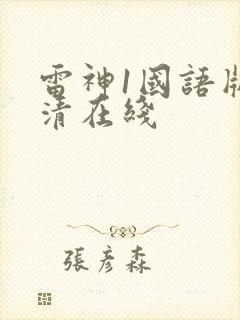 雷神1國語版
清在綫
張彥森